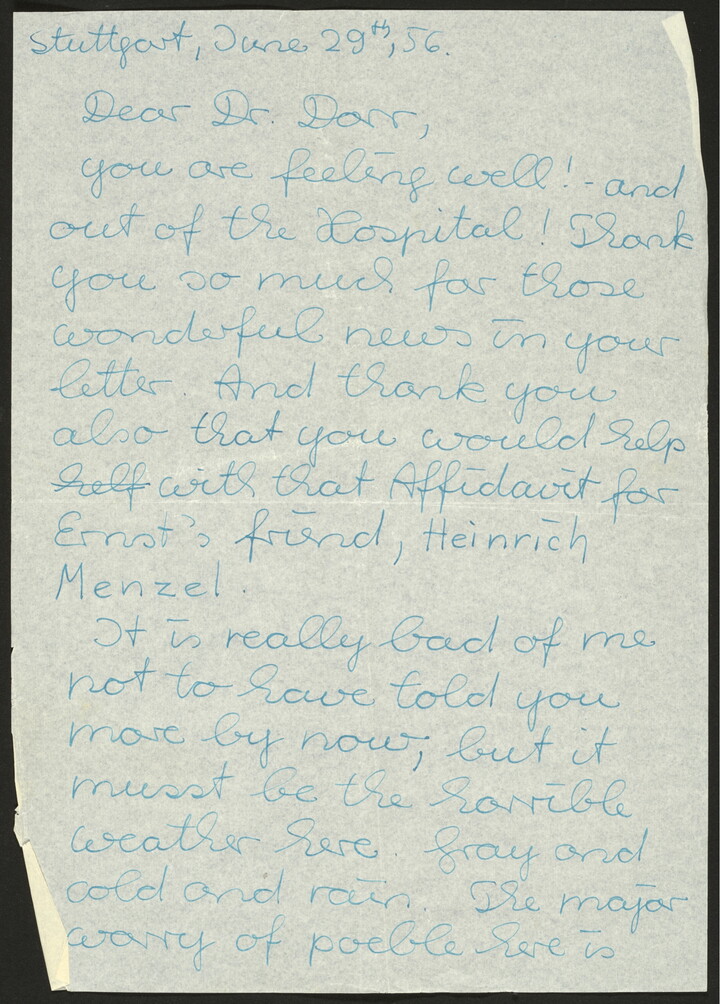 Stuttgart, June 29th, 56.
Dear Dr. Dorr,
you are feeling well! - and
out of the Hospital! Thank
you so much for those
wonderful news in your
letter And thank you
also that you would help
helf with that Affidavit for
Ernst's friend, Heinrich
Menzel
It is really bad of me
not to have told you
more by now, but it
musst be the horrible
weather here. Gray and
cold and rain. The major
worry of poeble here is